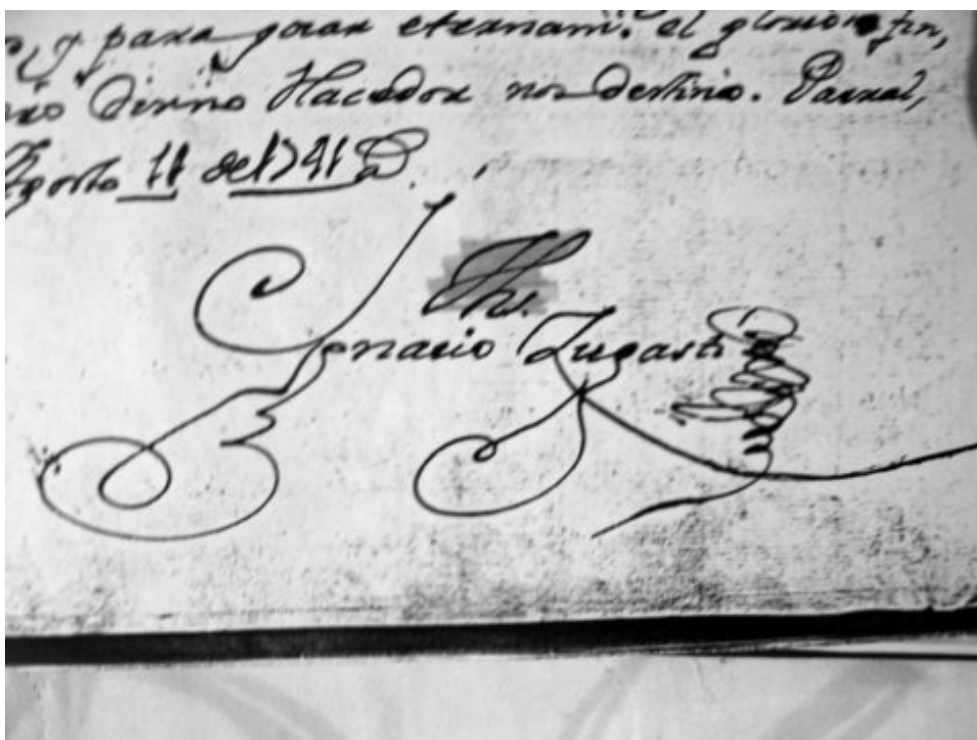 y para gozar eternam.te el glorioso fin,
Divino Hacedor nos destino. Parral,
Agosto 11 de 1741 a.
Jhs.
Ygnacio Zugasti